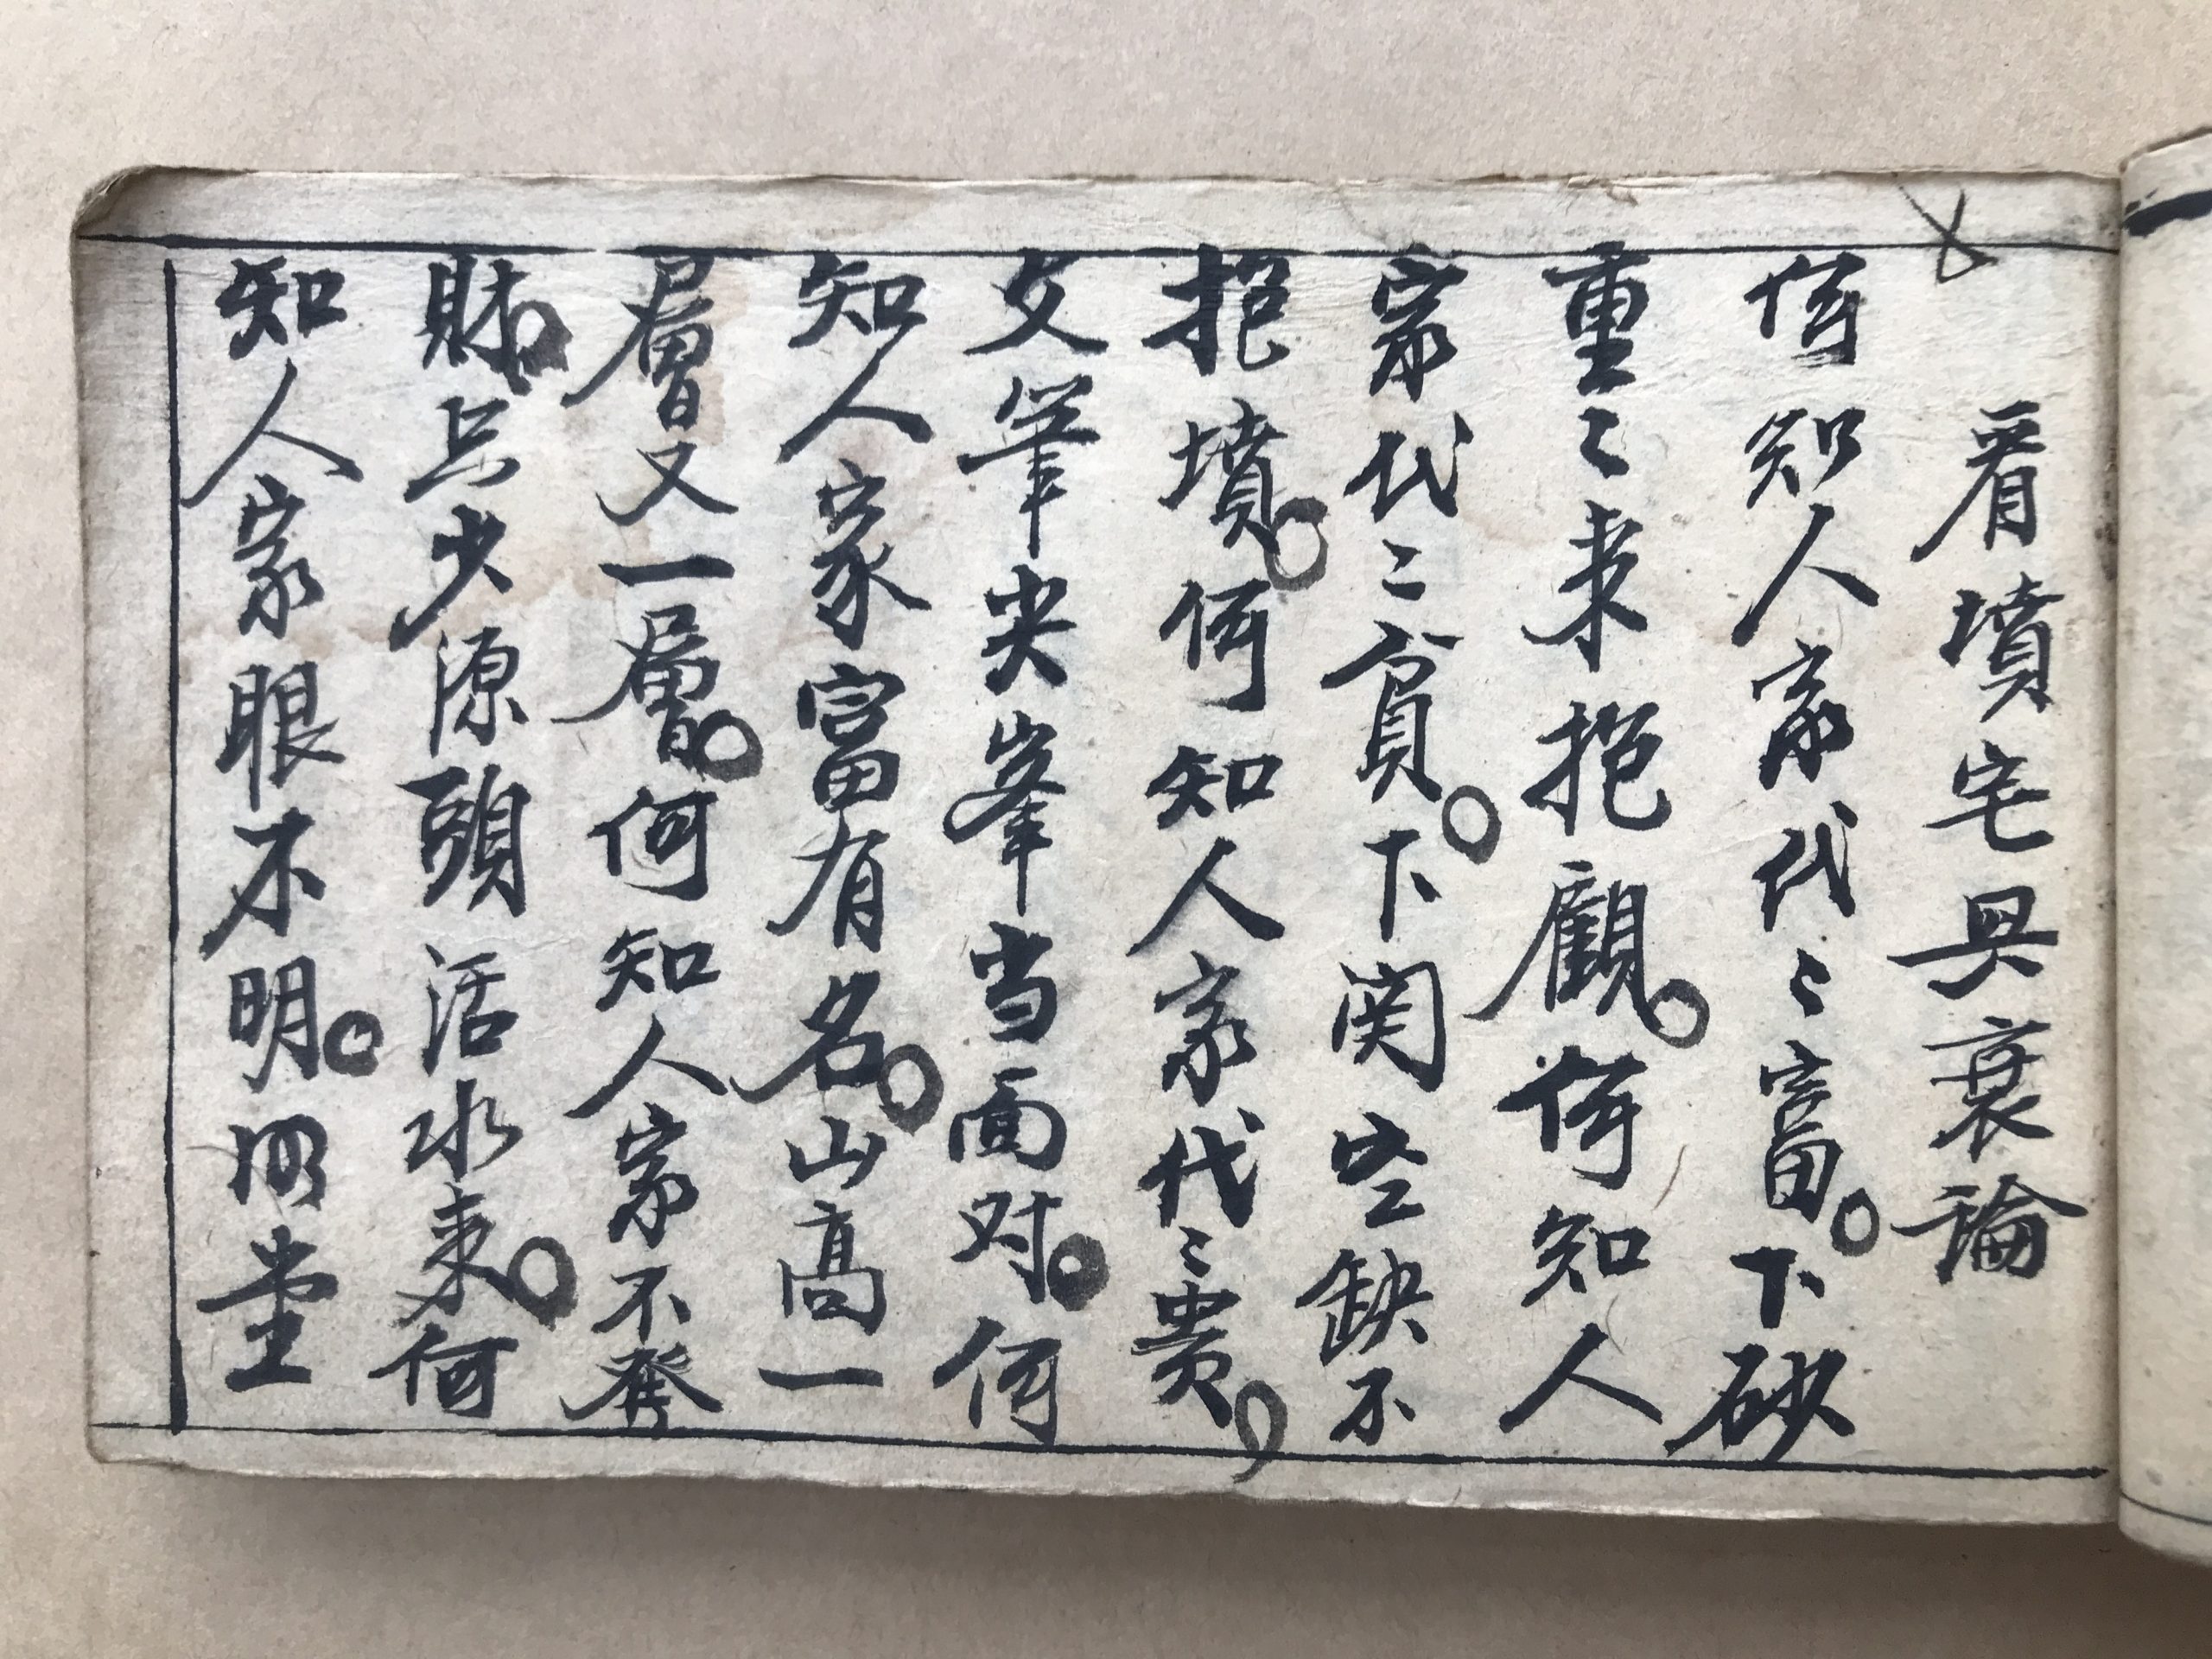 看墳宅具衰論
何知人家代〻富。下砂
重〻来抱顧。何知人
家代〻貧。下関空缺不
抱墳。何知人家代〻贵。
文筆尖峯当面对。何
知人家富有名。山高一
層又一層。何知人家不發
財。只少源頭活水来。何
知人家眼不明。明堂